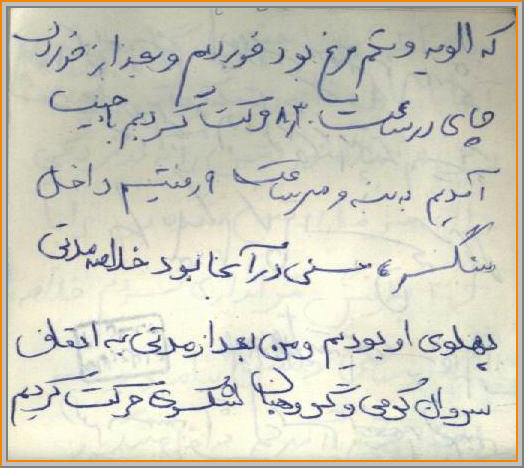 که الویه و تخم مرغ بود خوردیم و بعد از خوردن
چای در ساعت ۸/۳۰ حرکت کردیم با جیپ
آمدیم به بنه و در ساعت ۹ رفتیم داخل
سنگر، حسنی در آنجا بود خلاصه مدتی
پهلوی او بودیم و من بعد از مدتی به اتفاق
سروان کرمی و گروهبان لشکری حرکت کردیم